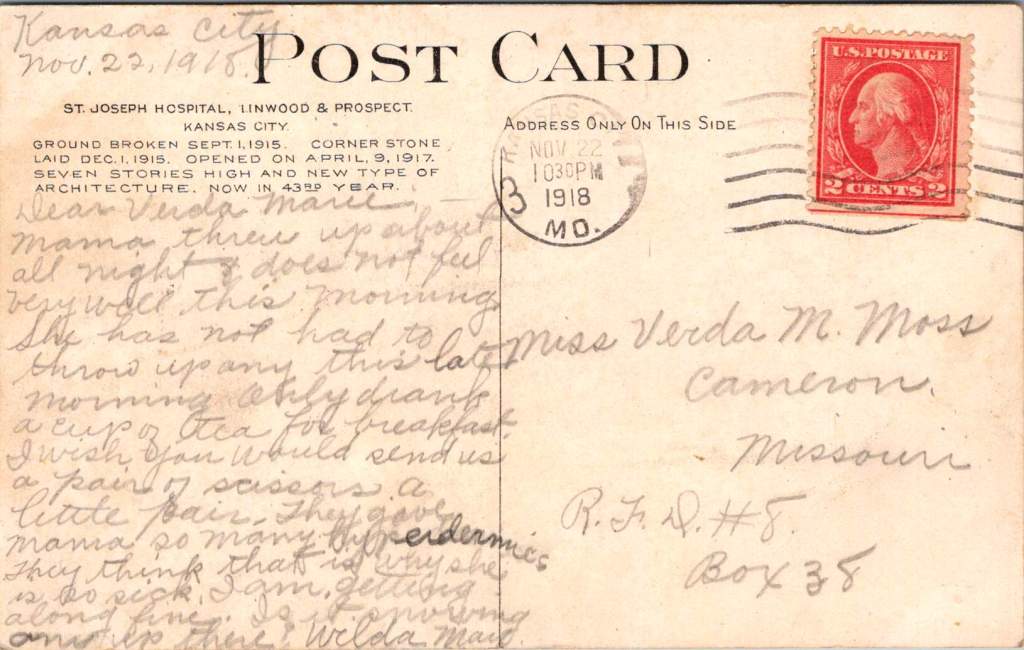 Kansas City
Nov. 22, 1918.
POST CARD
ST. JOSEPH HOSPITAL, LINWOOD & PROSPECT.
KANSAS CITY.
GROUND BROKEN SEPT. 1, 1915. CORNER STONE
LAID DEC. 1, 1915. OPENED ON APRIL, 9, 1917.
SEVEN STORIES HIGH AND NEW TYPE OF
ARCHITECTURE. NOW IN 43RD YEAR.
Dear Verda Marie, –
Mama threw up about
all night & does not feel
very well this morning
She has not had to
throw up any this late
morning Only drank
a cup of tea for breakfast.
I wish you would send us
a pair of scissors a
little pair. They gave
mama so many hypeidermics
They think that is why she
is so sick. I am getting
along fine. Is it snowing
any up there. Wilda
ADDRESS ONLY ON THIS SIDE
KANSAS
NOV 22
1030PM
1918
MO.
3
U.S. POSTAGE
2 CENTS 2
Miss Verda M. Moss
Cameron,
Missouri
R.F.D. #8.
Box 38